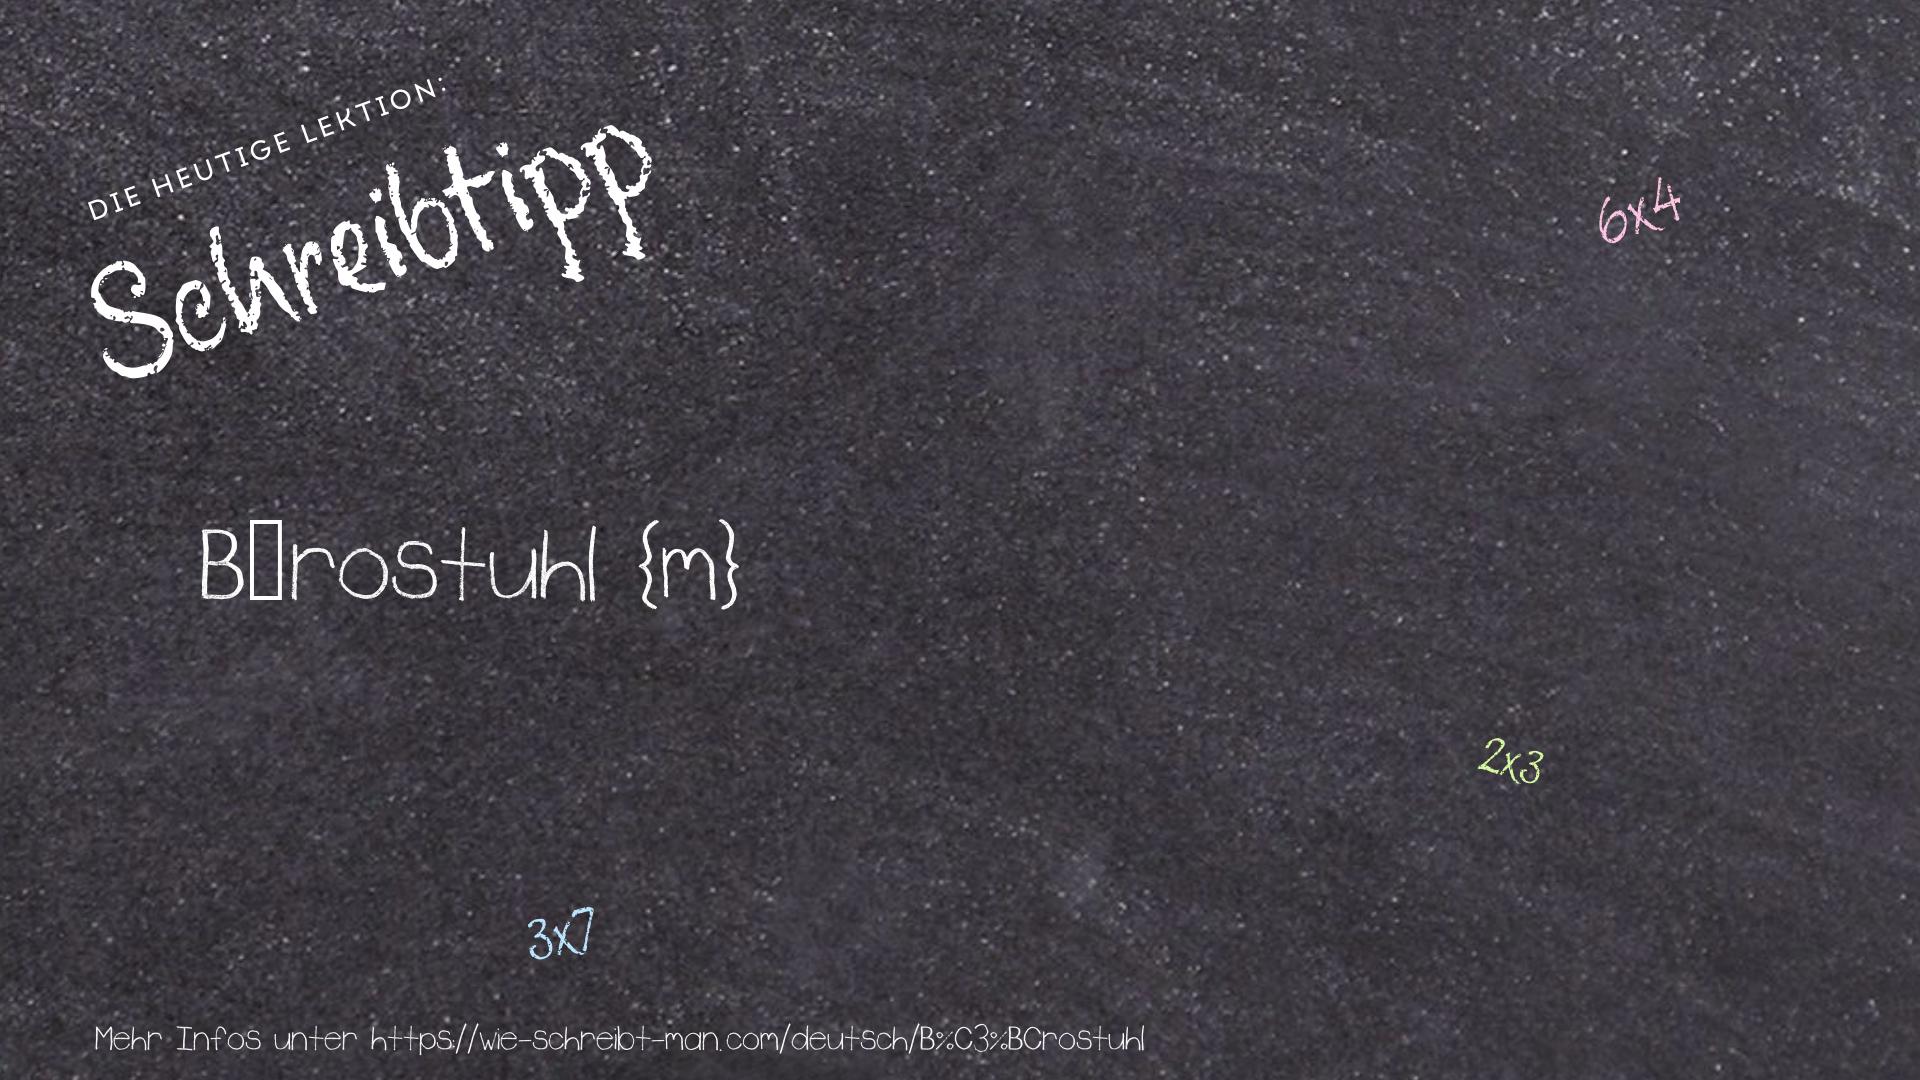 DIE HEUTIGE LEKTION:
Schreibtipp
6x4
B▯rostuhl {m}
2x3
3x7
Mehr Infos unter https://wie-schreibt-man.com/deutsch/B%C3%BCrostuhl